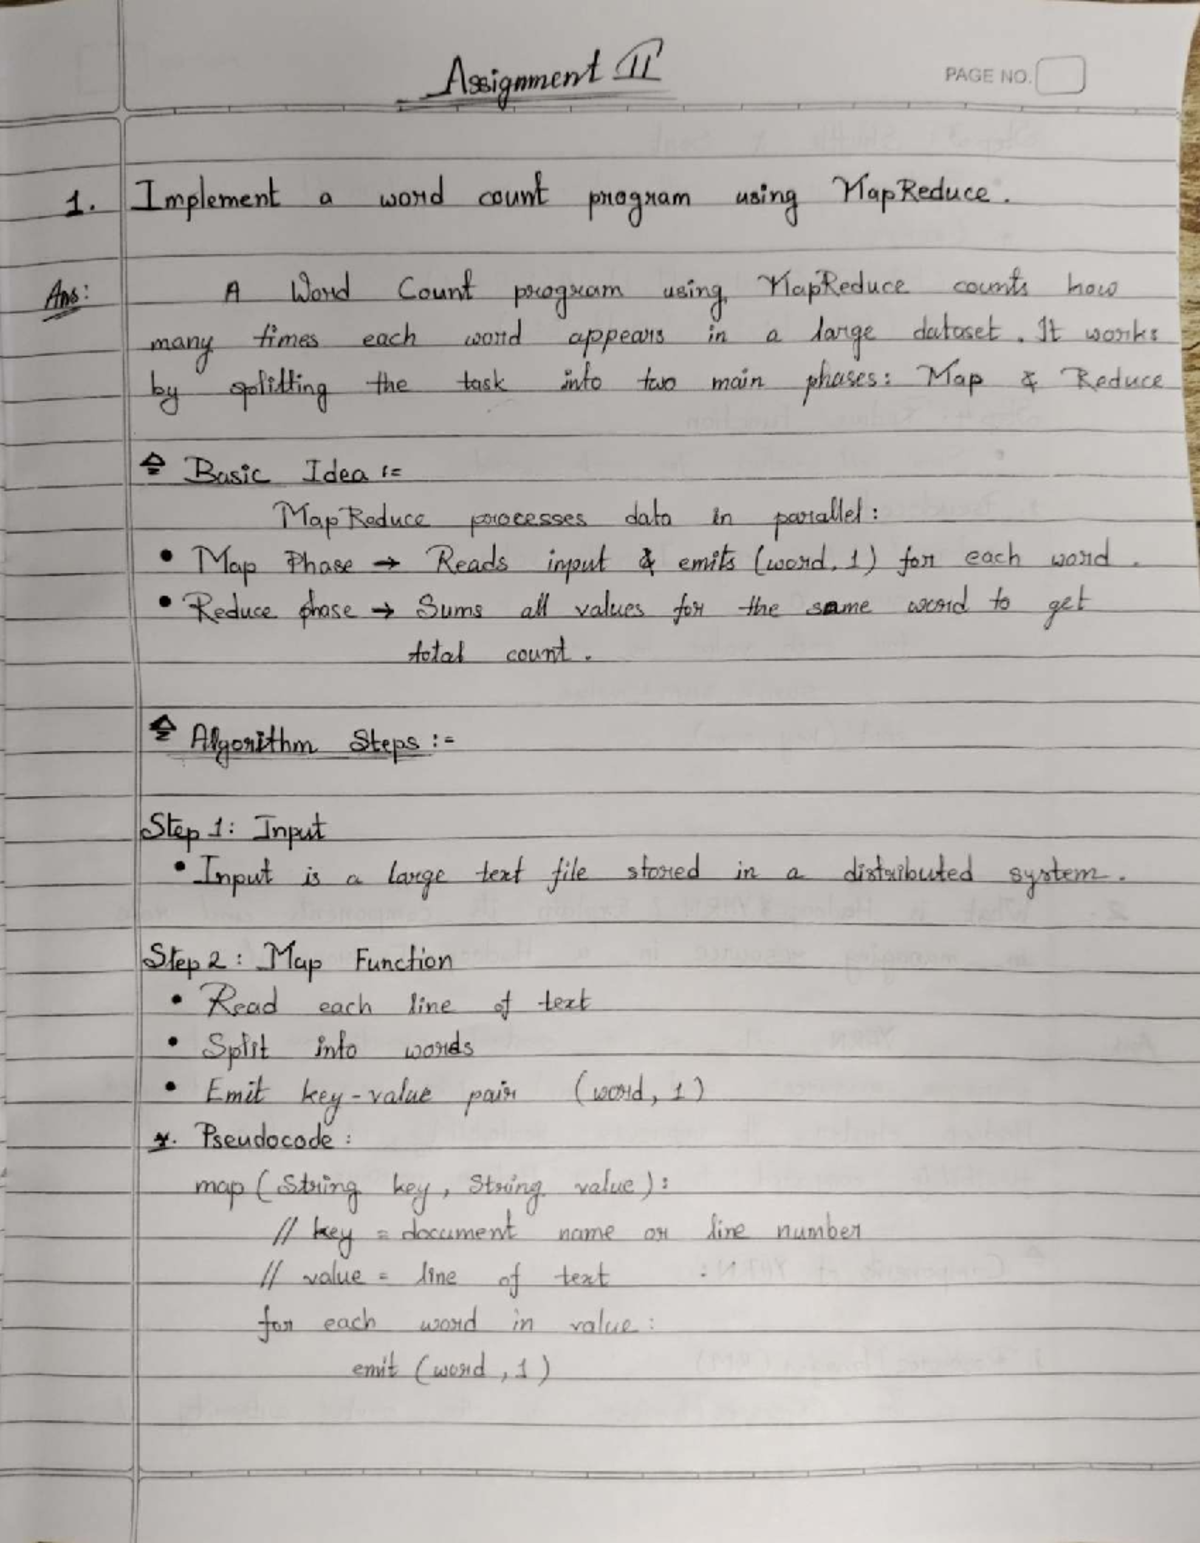 Assignment II
PAGE NO.
1. Implement a word count program using MapReduce.
Ans: A Word Count program using MapReduce counts how
many times each word appears in a large dataset. It works
by splitting the task into two main phases: Map & Reduce
Basic Idea :=
MapReduce processes data in parallel:
• Map Phase → Reads input & emits (word, 1) for each word.
• Reduce phase → Sums all values for the same word to get
total count.
Algorithm Steps :-
Step 1: Input
• Input is a large text file stored in a distributed system.
Step 2: Map Function
• Read each line of text
• Split into words
• Emit key-value pair (word, 1)
*. Pseudocode:
map (String key, String value):
// key = document name or line number
// value = line of text
for each word in value:
emit (word, 1)